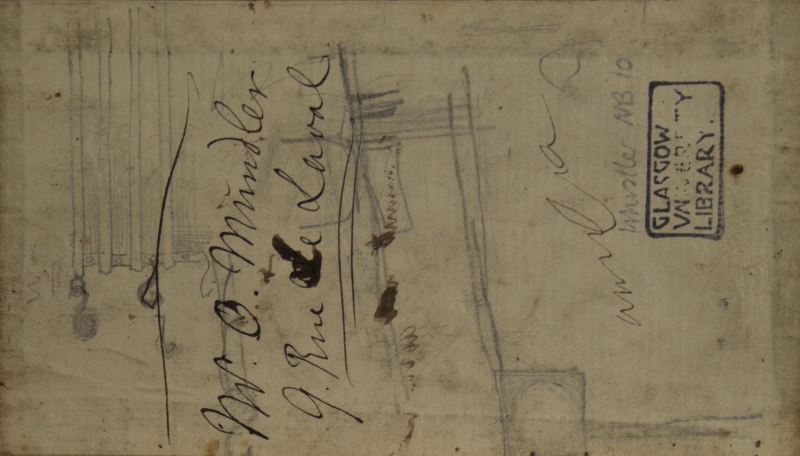 Mr. O. Mündler.
9. Rue de Laval
Whistler NB 10
GLASGOW
UNIVERSITY
LIBRARY.